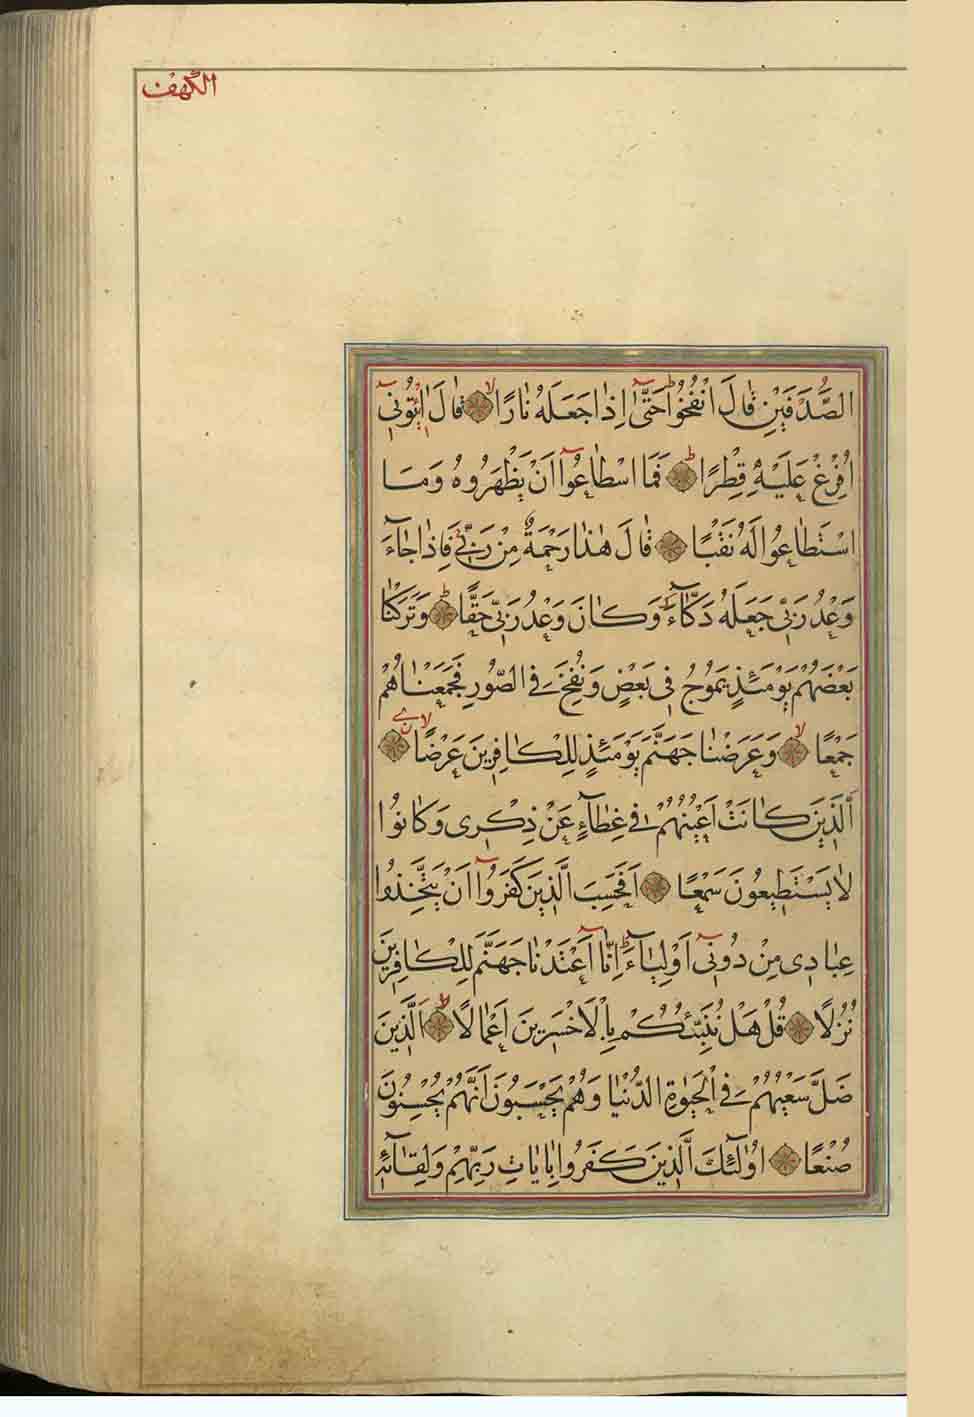 الكهف
الصُّدَفَيْنِ قَالَ انْفُخُوا حَتَّىٓ اِذَا جَعَلَهُ نَارًا لا قَالَ اٰتُونٖٓي
اُفْرِغْ عَلَيْهِ قِطْرًا ط فَمَا اسْطَاعُوٓا اَنْ يَظْهَرُوهُ وَمَا
اسْتَطَاعُوا لَهُ نَقْبًا قَالَ هٰذَا رَحْمَةٌ مِنْ رَبّٖي فَاِذَا جَٓاءَ
وَعْدُ رَبّٖي جَعَلَهُ دَكَّٓاءَ وَكَانَ وَعْدُ رَبّٖي حَقًّا ط وَتَرَكْنَا
بَعْضَهُمْ يَوْمَئِذٍ يَمُوجُ فٖي بَعْضٍ وَنُفِخَ فِي الصُّورِ فَجَمَعْنَاهُمْ
جَمْعًا لا وَعَرَضْنَا جَهَنَّمَ يَوْمَئِذٍ لِلْكَافِرٖينَ عَرْضًا لا
اَلَّذٖينَ كَانَتْ اَعْيُنُهُمْ فٖي غِطَٓاءٍ عَنْ ذِكْرٖي وَكَانُوا
لَا يَسْتَطٖيعُونَ سَمْعًا اَفَحَسِبَ الَّذٖينَ كَفَرُوٓا اَنْ يَتَّخِذُوا
عِبَادٖي مِنْ دُونٖٓي اَوْلِيَٓاءَ ط اِنَّٓا اَعْتَدْنَا جَهَنَّمَ لِلْكَافِرٖينَ
نُزُلًا قُلْ هَلْ نُنَبِّئُكُمْ بِالْاَخْسَرٖينَ اَعْمَالًا ط اَلَّذٖينَ
ضَلَّ سَعْيُهُمْ فِي الْحَيٰوةِ الدُّنْيَا وَهُمْ يَحْسَبُونَ اَنَّهُمْ يُحْسِنُونَ
صُنْعًا اُولٰٓئِكَ الَّذٖينَ كَفَرُوا بِاٰيَاتِ رَبِّهِمْ وَلِقَٓائِهٖ